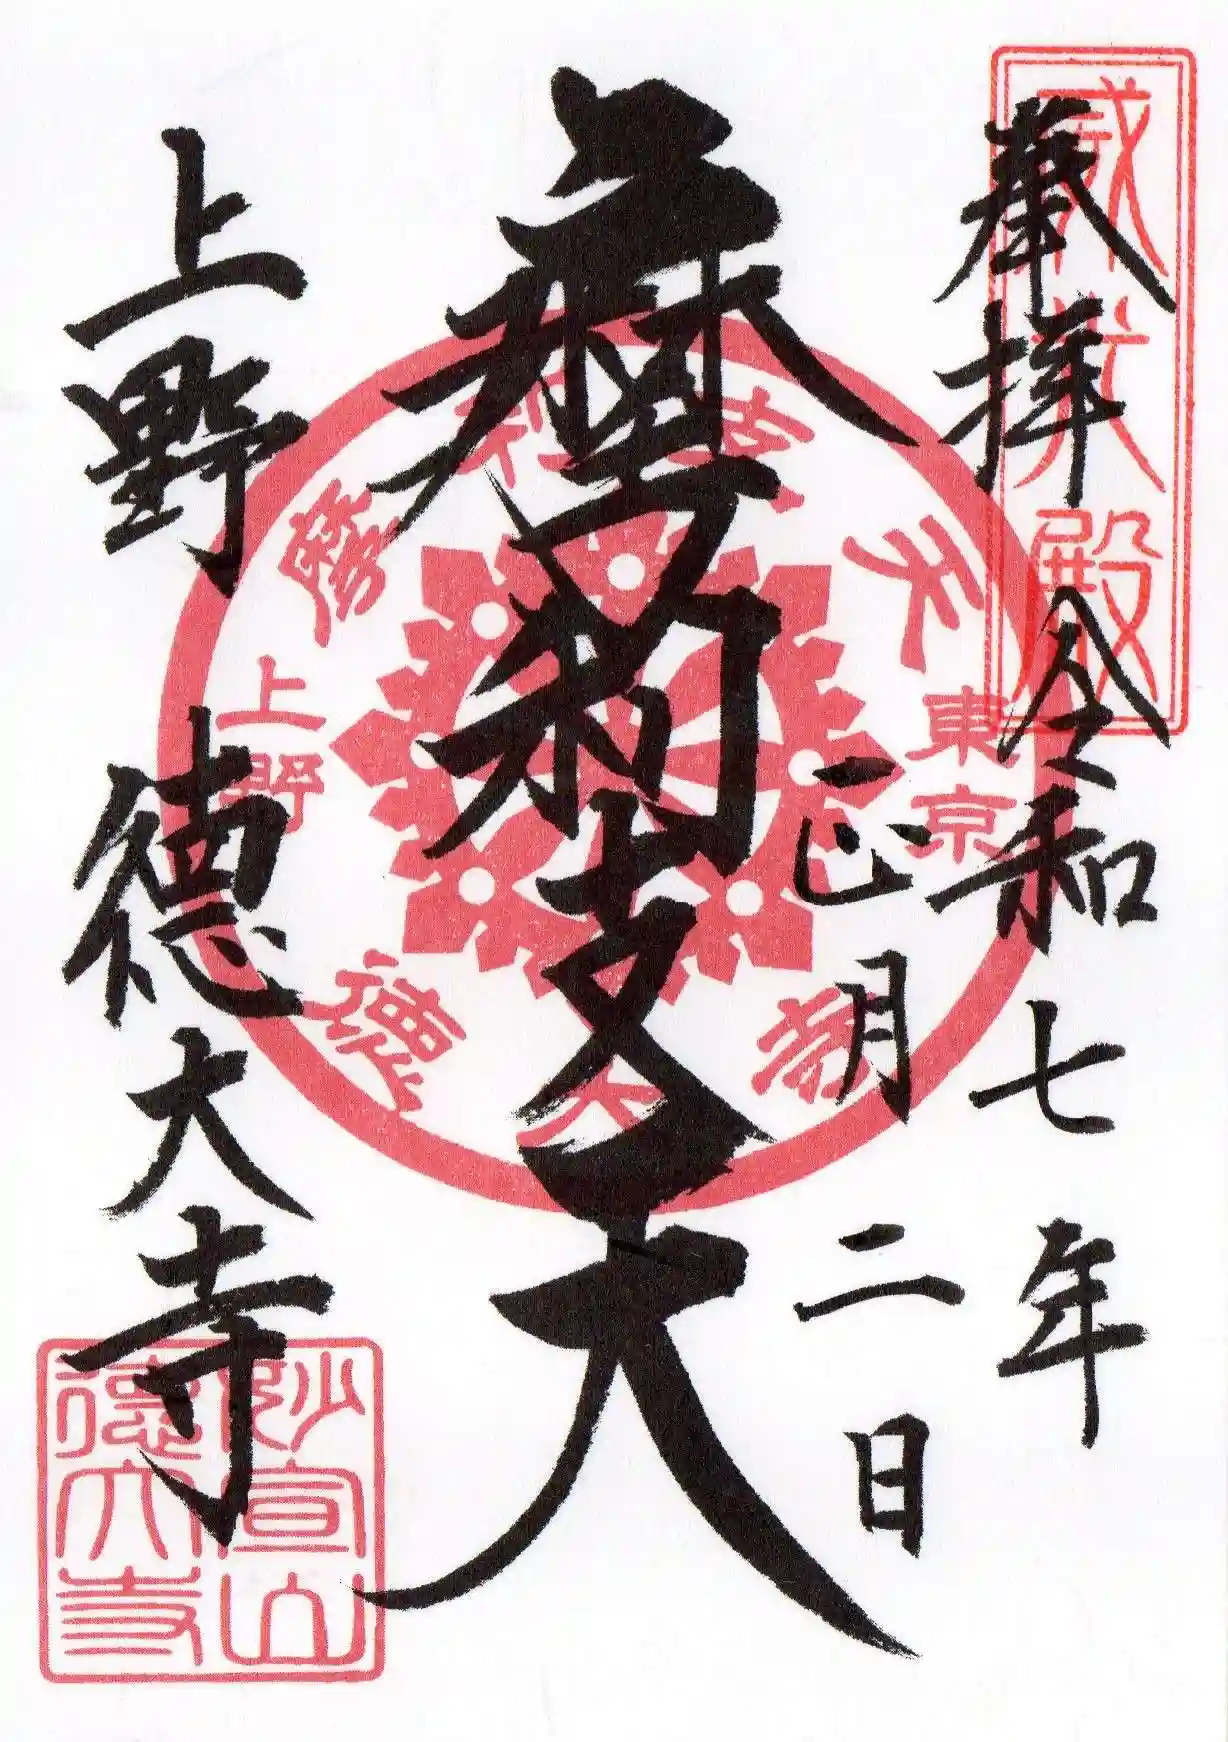 奉拝 令和七年
正月二日
摩利支天
上野 德大寺
威光殿
摩利支天
東京
上野
德大寺
妙宣山
德大寺